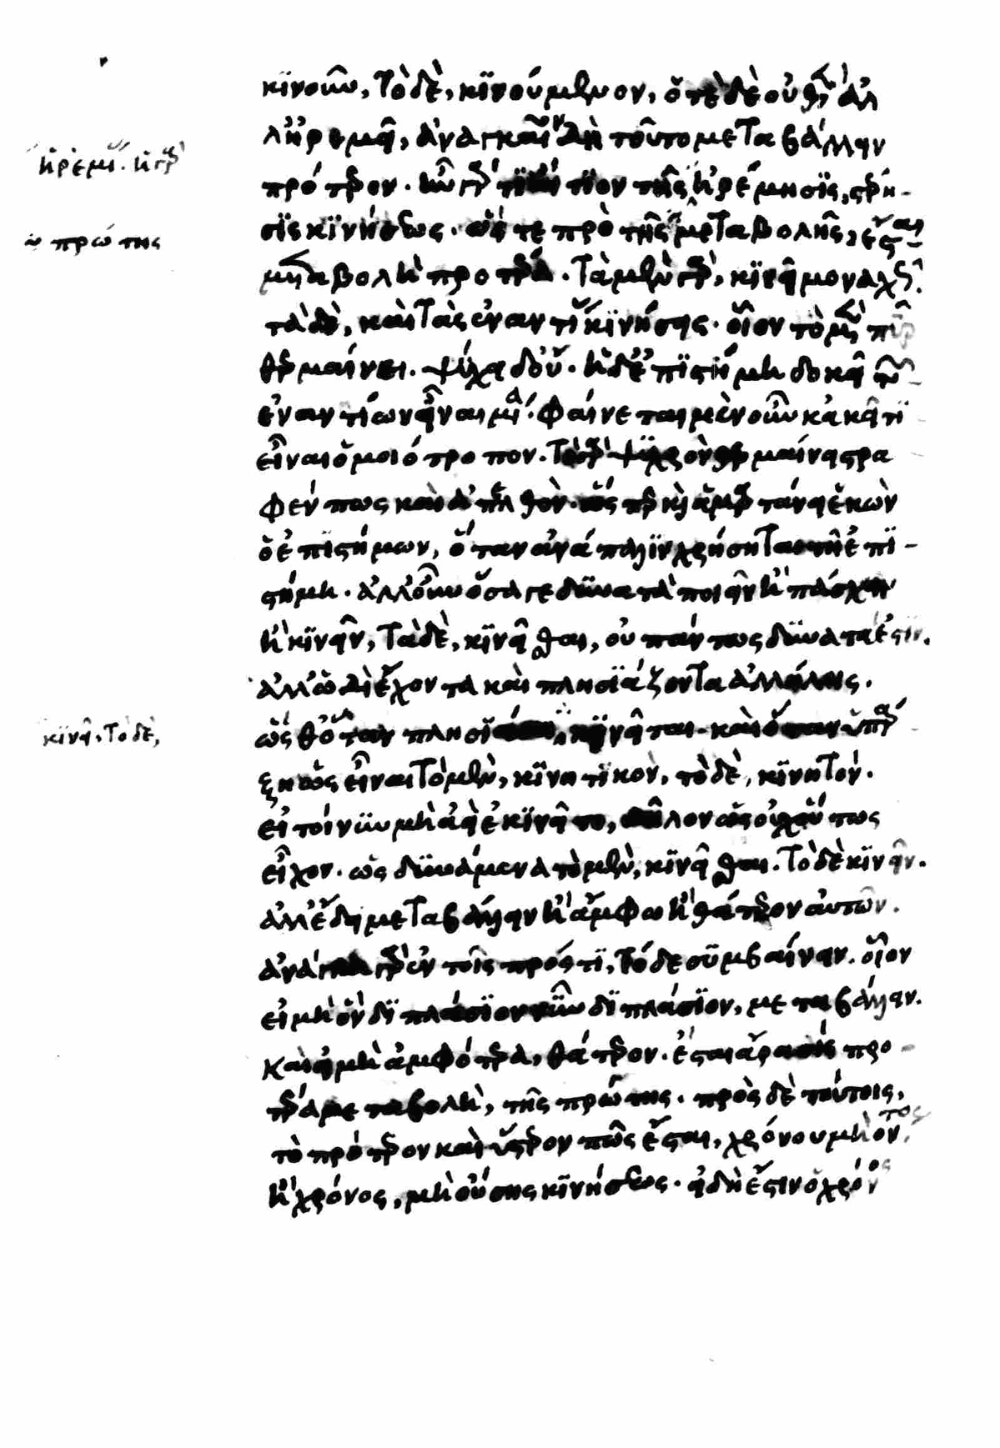 κϊνοῦν, τὸ δὲ, κϊνούμενον, ὁτὲ δὲ οὐθέν ἀλ
λ' ἠρεμεῖ, ἀναγκαῖον δὴ τοῦτο μεταβάλλειν
ἠρεμίας· ἡ γὰρ
πρότερον· ἦν γάρ τϊ αἴτϊον τῆς ἠρέμησϊς, στέρη-
πρώτης
σϊς κϊνήσεως· ὥστε πρὸ τῆς μεταβολῆς, ἔσται
μεταβολὴ προτέρα. τὰ μὲν γὰρ, κϊνεῖ μοναχῶς.
τὰ δὲ, καὶ τὰς ἐναντίας κϊνήσεις· οἷον τὸ μὲν πῦρ
θερμαίνει. ψύχει δ' οὔ. ἡ δ' ἐπϊστήμη δοκεῖ τῶν
ἐναντίων εἶναι μία. φαίνεται μὲν οὖν κἀκεῖ τϊ
εἶναι ὁμοιότροπον. τὸ γὰρ ψϋχρὸν θερμαίνει στρα
φέν πως καὶ ἀπελθόν· ὥσπερ καὶ ἁμαρτάνει ἑκὼν
ὁ ἐπϊστήμων, ὅταν ἀνάπαλϊν χρήσηται τῇ ἐπϊ-
στήμῃ. ἀλλ' οὖν ὅσα γε δϋνατὰ ποιεῖν ἢ πάσχειν
ἢ κϊνεῖν, τὰ δὲ, κϊνεῖσθαι, οὐ πάντως δϋνατά ἐστϊν.
ἀλλ' ὡδὶ ἔχοντα καὶ πλησϊάζοντα ἀλλήλοις.
κϊνεῖ. τὸ δὲ,
ὥσθ' ὅταν πλησϊάσῃ, κϊνεῖται· καὶ ὅταν ὑπάρ
ξῃ ὡς εἶναι τὸ μὲν, κϊνητϊκὸν, τὸ δὲ, κϊνητόν.
εἰ τοίνϋν μὴ ἀεὶ ἐκϊνεῖτο, δῆλον ὡς οὐχ οὕτως
εἶχον. ὡς δϋνάμενα τὸ μὲν, κϊνεῖσθαι. τὸ δὲ κϊνεῖν.
ἀλλ' ἔδει μεταβάλλειν ἢ ἄμφω ἢ θάτερον αὐτῶν.
ἀνάγκη γὰρ ἐν τοῖς πρός τϊ, τόδε συμβαίνειν. οἷον
εἰ μὴ ὂν δϊπλάσϊον νῦν δϊπλάσϊον, μεταβάλλειν.
καὶ εἰ μὴ ἀμφότερα, θάτερον. ἔσται ἄρα τις προ-
τέρα μεταβολὴ, τῆς πρώτης. πρὸς δὲ τούτοις,
τὸ πρότερον καὶ ὕστερον πῶς ἔσται, χρόνου μὴ ὄντος,
ἢ χρόνος, μὴ οὔσης κϊνήσεως. εἰ δὴ ἔστιν ὁ χρόνος